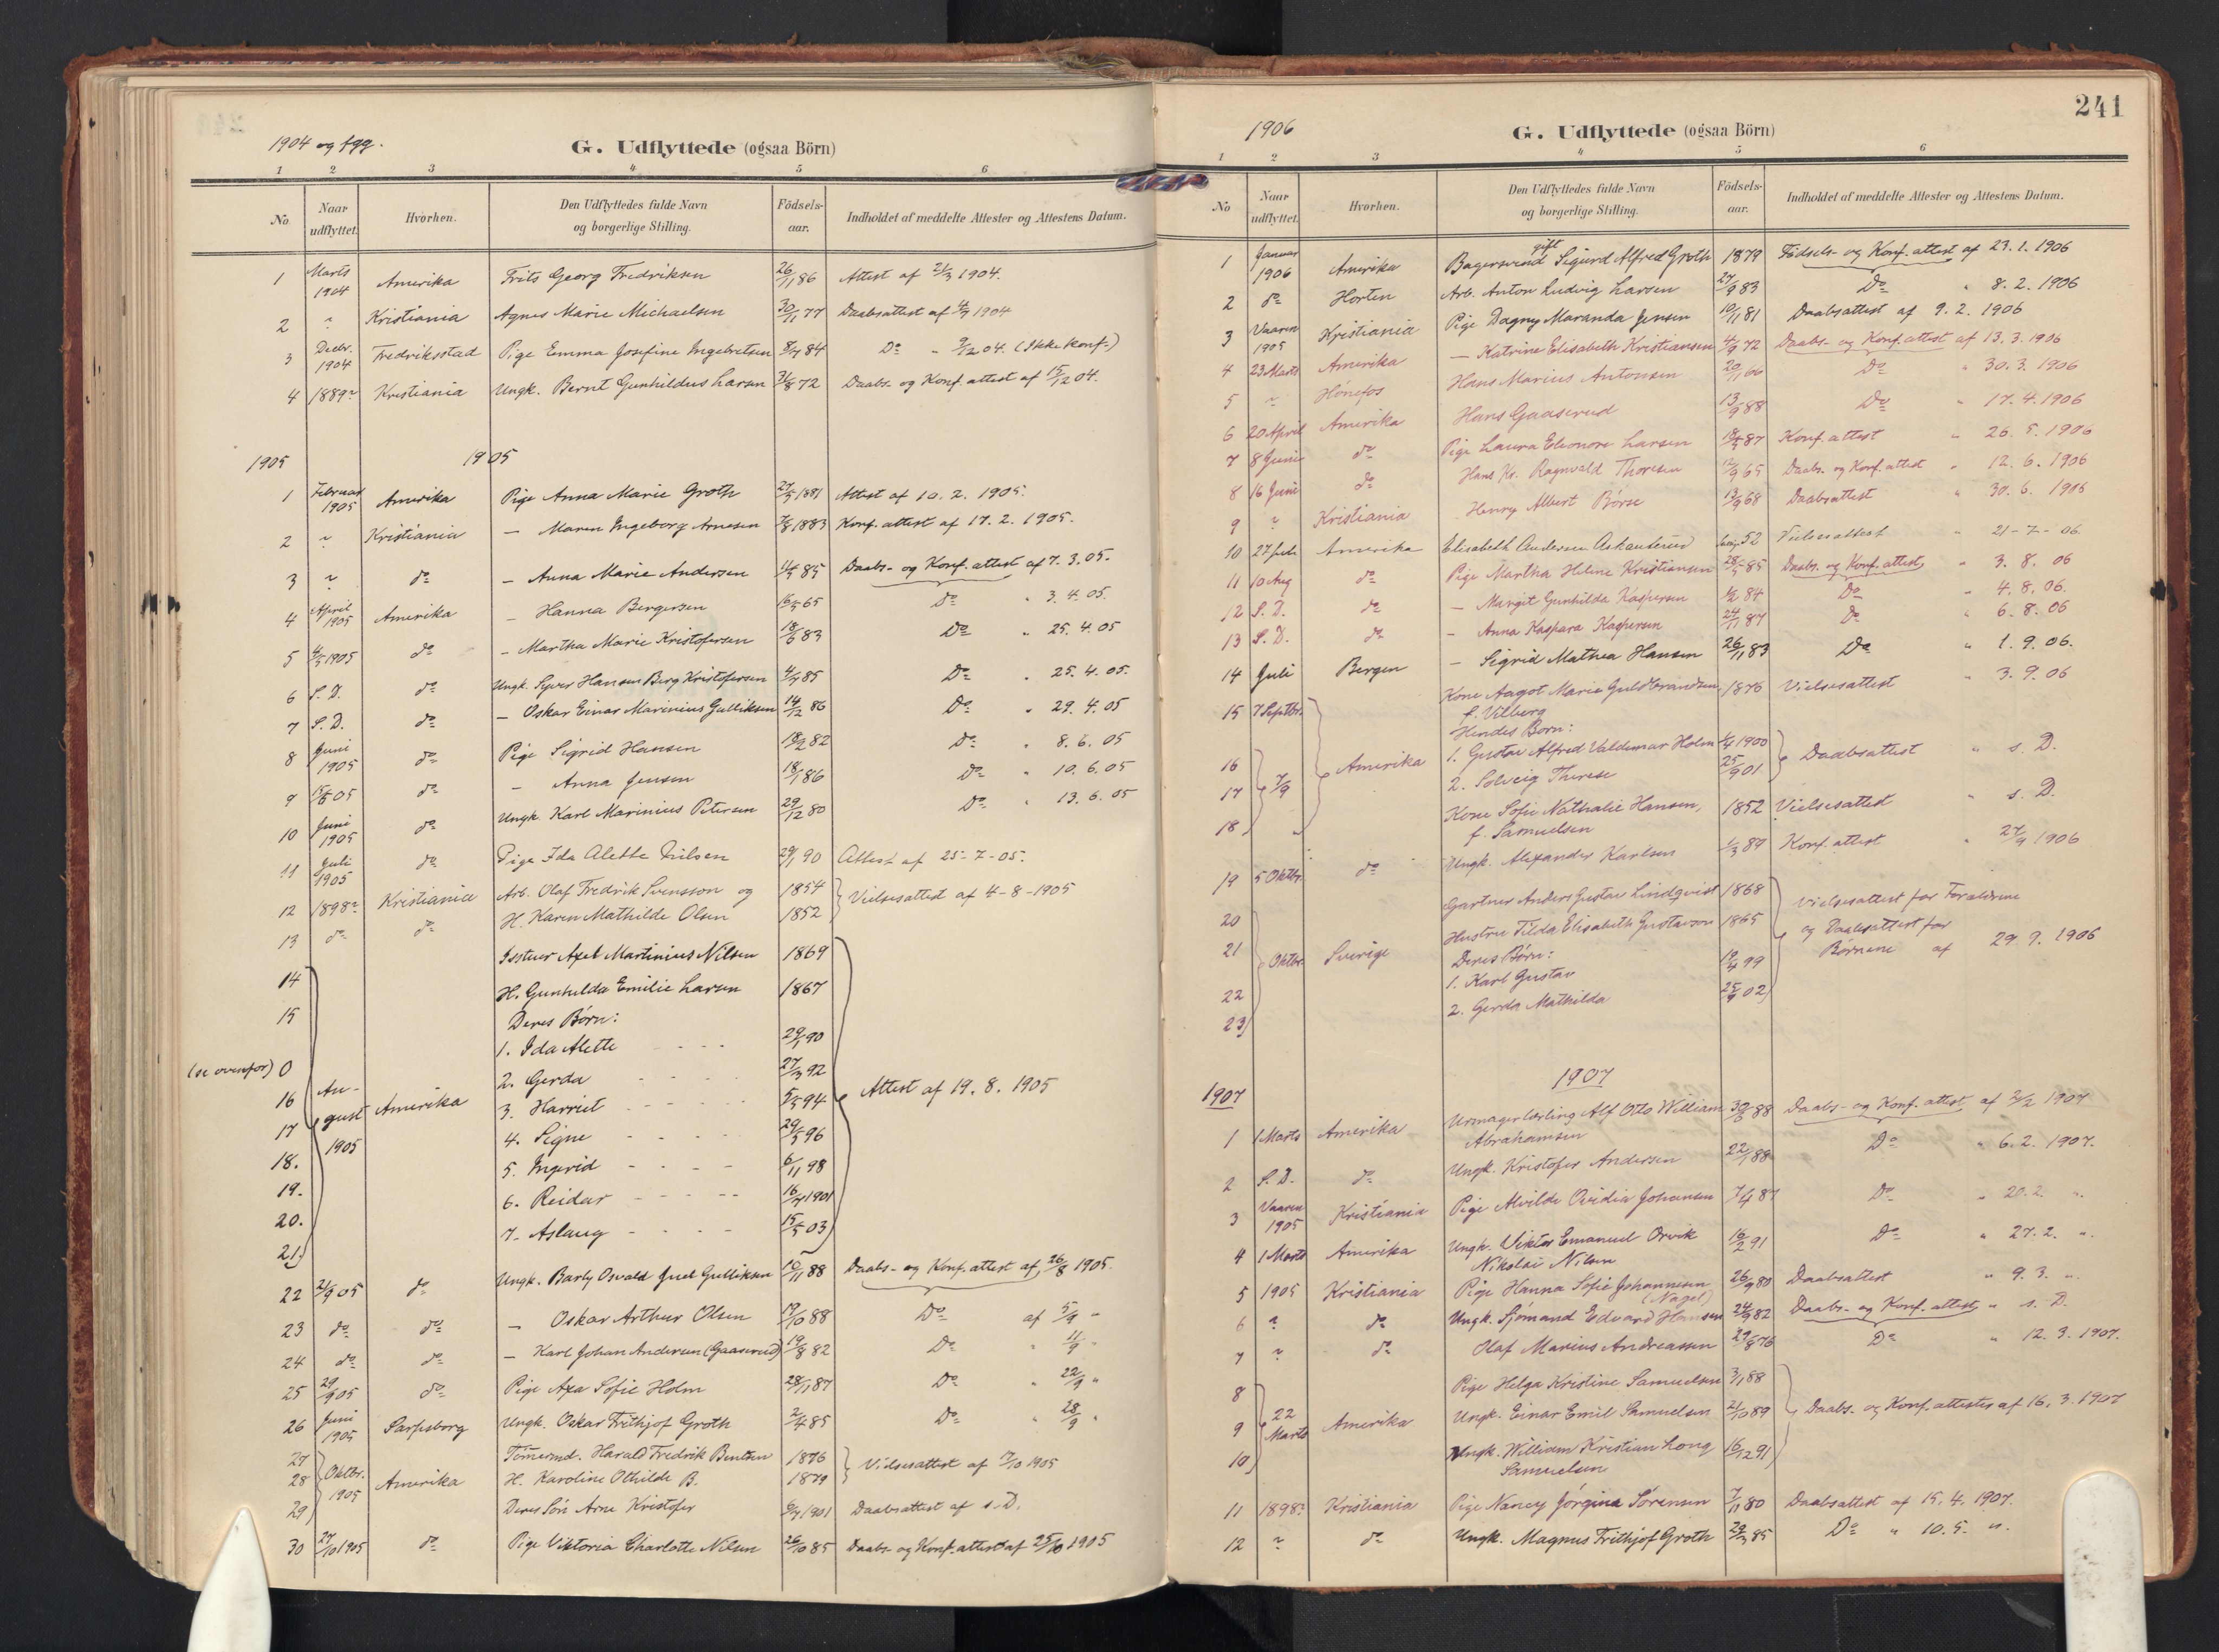 1904 og fgg.
G. Udflyttede (ogsaa Börn)
1 2 3 4 5 6
No. Naar udflyttet. Hvorhen. Den Udflyttedes fulde Navn og borgerlige Stilling. Födsels-aar. Indholdet af meddelte Attester og Attestens Datum.
1 Marts 1904 Amerika Frits Georg Fredriksen 26/1 86 Attest af 21/3 1904.
2 " Kristiania Agnes Marie Michaelsen 30/11 77 Daabsattest af 4/7 1904
3 Decbr. 1904 Fredriksstad Pige Emma Josefine Ingebretsen 8/7 84 Do " 9/12 04. (Ikke konf.)
4 1889? Kristiania Ungk. Bernt Gunhildus Larsen 31/8 72 Daabs- og Konf. attest af 15/12 04.
1905 1905
1 Februar 1905 Amerika Pige Anna Marie Groth 27/5 1881 Attest af 10. 2. 1905.
2 " Kristiania — Maren Ingeborg Arnesen 7/8 1883 Konf. attest af 17. 2. 1905.
3 " do — Anna Marie Andersen 85 Daabs- og Konf. attest af 7. 3. 05.
4 April 1905 Amerika — Hanna Bergersen 16/5 65 Do " 3. 4. 05.
5 4/5 1905 do — Martha Marie Kristofersen 18/6 83 Do " 25. 4. 05
6 S. D. do Ungk. Syver Hansen Berg Kristofersen 4/7 85 Do " 25. 4. 05.
7 S. D. do — Oskar Einar Marinius Gulliksen 14/12 86 Do " 29. 4. 05
8 Juni 1905 do Pige Sigrid Hansen 18/2 82 Do " 8. 6. 05
9 15/6 05 do — Anna Jensen 18/1 86 Do " 10. 6. 05
10 Juni 1905 do Ungk. Karl Marinius Petersen 29/12 80 Do " 13. 6. 05
11 Juli 1905 do Pige Ida Alette Nilsen 29/1 90 Attest af 25-7-05.
12 1898? Kristiania Arb. Olaf Fredrik Svensson og 1854 Vielsesattest af 4-8-1905
13 do do H. Karen Mathilde Olsen 1852
14 Axel Martinius Nilsen 1869
15 H. Gunhilda Emilie Larsen 1867
Deres Børn:
(se ovenfor) 0 1. Ida Alette 29/1 90
16 2. Gerda 27/3 92
17 August 1905 Amerika 3. Harriet 5/5 94 Attest af 19. 8. 1905
18. 4. Signe 29/5 96
19. 5. Ingrid 6/11 98
20. 6. Reidar 16/7 1901
21. 7. Aslaug 15/5 03
22 21/9 05 do Ungk. Barly Osvald Juel Gulliksen 15/11 88 Daabs- og Konf. attest af 26/8 1905.
23 do do — Oskar Arthur Olsen 19/10 88 Do af 5/9 "
24 do do — Karl Johan Andersen (Gaaserud) 19/8 82 Do " 11/9 "
25 29/9 05 do Pige Axa Sofie Holm 28/1 87 Do " 22/9 "
26 Juni 1905 Sarpsborg Ungk. Oskar Frithjof Groth 2/4 85 Do " 28/9 "
27 Tømermd. Harald Fredrik Bentsen 1876 Vielsesattest af 7/10 1905
28 Oktbr. 1905 Amerika H. Karoline Othilde B. 1879
29 Deres Søn Arne Kristofer 6/7 1901 Daabsattest af s. D.
30 27/10 1905 do Pige Viktoria Charlotte Nilsen 26/10 85 Daabs- og Konf. attest af 25/10 1905
241
1906
G. Udflyttede (ogsaa Börn)
1 2 3 4 5 6
No Naar udflyttet. Hvorhen. Den Udflyttedes fulde Navn og borgerlige Stilling. Födsels-aar. Indholdet af meddelte Attester og Attestens Datum.
1 Januar 1906 Amerika Bagersvend gift Sigurd Alfred Groth 1879 Fødsels- og Konf. attest af 23. 1. 1906
2 do Horten Arb. Anton Ludvig Larsen 27/9 83 Do " 8. 2. 1906
3 Vaaren 1905 Kristiania Pige Dagny Maranda Jensen 10/11 81 Daabsattest af 9. 2. 1906
4 23 Marts Amerika — Katrine Elisabeth Kristiansen 4/9 72 Daabs- og Konf. attest af 13. 3. 1906
5 " Hønefos Hans Marius Antonsen 20/1 66 Do " 30. 3. 1906
6 20 April Amerika Hans Gaaserud 13/9 88 Do " 17. 4. 1906
7 8 Juni do Pige Laura Eleonore Larsen 87 Konf. attest " 26. 5. 1906
8 16 Juni do Hans Kr. Ragnvald Thoresen 12/9 65 Daabs- og Konf. attest " 12. 6. 1906
9 " Kristiania Henry Albert Börse 13/9 68 Daabsattest " 30. 6. 1906
10 27 Juli Amerika Elisabeth Andersen Askautsrud 52 Vielsesattest " 21-7-06.
11 10 Aug do Pige Martha Helene Kristiansen 28/5 85 Daabs. og Konf. attest " 3. 8. 06
12 S. D. do — Margit Gunhilda Kaspersen 84 Do " 4. 8. 06.
13 S. D. do — Anna Kaspara Kaspersen 24/11 87 Do " 6. 8. 06
14 Juli Bergen — Sigrid Mathea Hansen 26/1 83 Do " 1. 9. 06.
15 7 Septbr. Kone Aagot Marie Guldbrandsen, f. Vilberg 1876 Vielsesattest " 3. 9. 06
Hendes Børn:
16 Amerika 1. Gustav Alfred Valdemar Holm 1/4 1900 Daabsattest " s. D.
17 7/9 2. Solveig Therese 25/9 01
18 Kone Sofie Nathalie Hansen, f. Samuelsen 1852 Vielsesattest " s. D.
19 5 Oktbr. do Ungk. Alexander Karlsen 1/3 89 Konf. attest " 27/9 1906
20 Gartner Anders Gustav Lindqvist 1868 Vielsesattest for Forældrene
21 Oktbr Sverige Hustru Tilda Elisabeth Gustavson 1865 og Daabsattest for
Deres Børn: Børnene af 29. 9. 1906
22 1. Karl Gustav 19/4 99
23 2. Gerda Mathilda 25/9 02
1907 1907
1 1 Marts Amerika Urmagerlærling Alf Otto William Abrahamsen 30/6 88 Daabs- og Konf. attest af 2/2 1907
2 S. D. do Ungk. Kristofer Andersen 22/1 88 Do " 6. 2. 1907.
3 Vaaren 1905 Kristiania Pige Alvilde Ovidia Johansen 7/4 87 Do " 20. 2. "
4 1 Marts Amerika Ungk. Viktor Emanuel Orvik Nikolai Nilsen 16/2 91 Do " 27. 2. "
5 1905 Kristiania Pige Hanna Sofie Johannesen (Nagel) 26/9 80 Daabsattest " 9. 3. "
6 " do Ungk. Sjømand Edvard Hansen 24/9 82 Daabs- og Konf. attest " s. D.
7 " do Olaf Marius Andreassen 29/8 76 Do " 12. 3. 1907.
8 Pige Helga Kristine Samuelsen 3/1 88
9 22 Marts Amerika Ungk. Einar Emil Samuelsen 21/10 89 Daabs- og Konf. attester af 16. 3. 1907
10 Ungk. William Kristian Long Samuelsen 16/12 91
11 1898? Kristiania Pige Nancy Jörgine Sørensen 7/11 80 Daabsattest af 15. 4. 1907.
12 " do Ungk. Magnus Frithjof Groth 29/3 85 Do " 10. 5. "